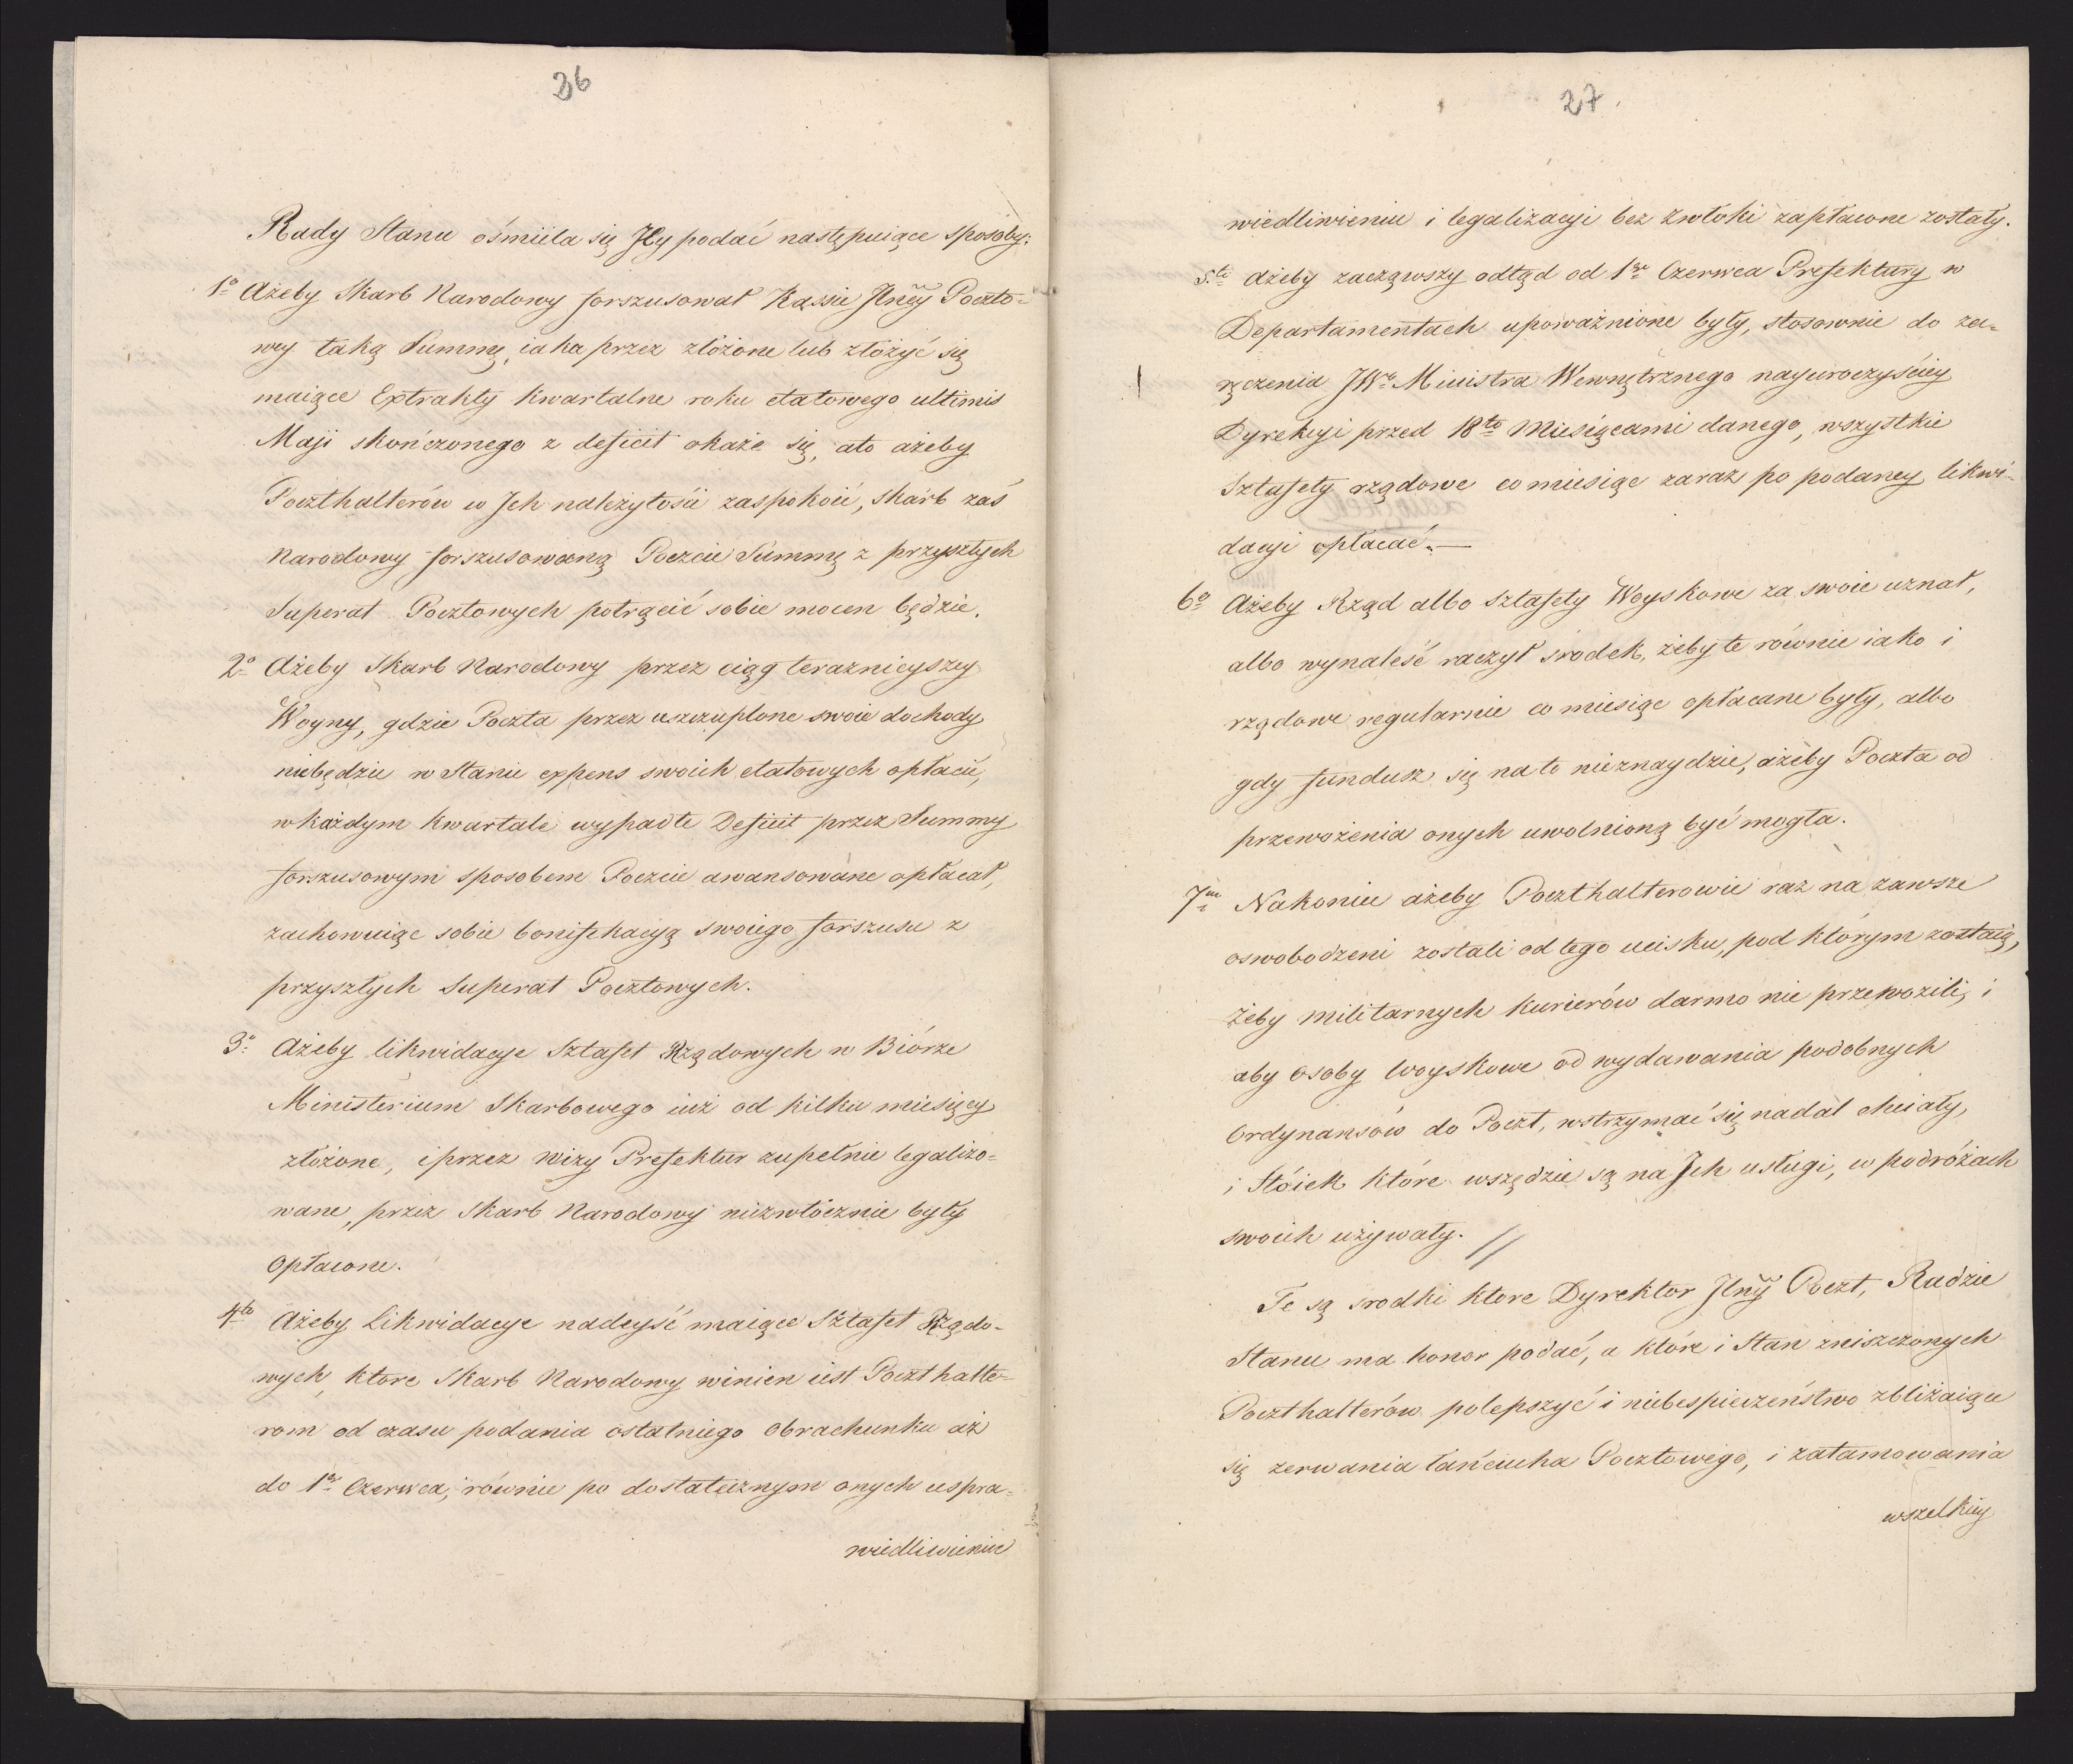 36
Rady Stanu ośmiela się Jey podać następuiące sposoby:
1o Ażeby Skarb Narodowy forszusował Kassie Jlney Poczto-
wey taką Summę, iaka przez złożone lub złożyć się
maiące Extrakty kwartalne roku etatowego ultimis
Maji skończonego z deficit okaże się, ato ażeby
Poczthalterów w Jch należytości zaspokoić, skarb zaś
Narodowy forszusowaną Poczcie Summę z przyszłych
Superat Pocztowych potrącić sobie mocen będzie.
2o Ażeby Skarb Narodowy przez ciąg teraznieyszey
Woyny, gdzie Poczta przez uszczuplone swoie dochody
niebędzie w Stanie expens swoich etatowych opłacić,
w każdym kwartale wypadłe Deficit przez Summy
forszusowym sposobem Poczcie awansowane opłacał,
zachowuiąc sobie bonifikacyą swoiego forszusu z
przyszłych Superat Pocztowych.
3o Ażeby likwidacye Sztafet Rządowych w Biórze
Ministerium Skarbowego iuż od kilku miesięcy
złożone, i przez wizy Prefektur zupełnie legalizo-
wane, przez Skarb Narodowy niezwłocznie były
opłacone.
4to Ażeby Likwidacye nadeyść maiące Sztafet Rządo-
wych, ktore Skarb Narodowy winien iest Poczthalte-
rom od czasu podania ostatniego obrachunku aż
do 1go Czerwca, równie po dostatecznym onych uspra-
wiedliwieniu
27.
wiedliwieniu i legalizacyi bez zwłoki zapłacone zostały.
5te Ażeby zacząwszy odtąd od 1go Czerwca Prefektury w
Departamentach upoważnione były, stosownie do za-
ręczenia JWo Ministra Wewnętrznego nayuroczyściey
Dyrekcyi przed 18to Miesiącami danego, wszystkie
Sztafety rządowe co miesiąc zaraz po podaney likwi-
dacyi opłacać.—
6o Ażeby Rząd albo sztafety Woyskowe za swoie uznał,
albo wynaleść raczył srodek, żeby te równie iako i
rządowe regularnie co miesiąc opłacane były, albo
gdy fundusz się na to nieznaydzie, ażeby Poczta od
przewożenia onych uwolnioną być mogła.
7m Nakoniec ażeby Poczthalterowie raz na zawsze
oswobodzeni zostali od tego ucisku, pod którym zostaią,
żeby militarnych kurierów darmo nie przewozili, i
aby osoby woyskowe od wydawania podobnych
Ordynansów do Poczt, wstrzymać się nadal chciały,
i Stóiek które wszędzie są na Jch usługi, w podróżach
swoich używały. //
Te są srodki ktore Dyrektor Jlny Poczt, Radzie
Stanu ma honor podać, a które i Stan zniszczonych
Poczthalterów polepszyć i niebespieczeństwo zbliżaiące
się zerwania łańcucha Pocztowego, i zatamowania
wszelkiey